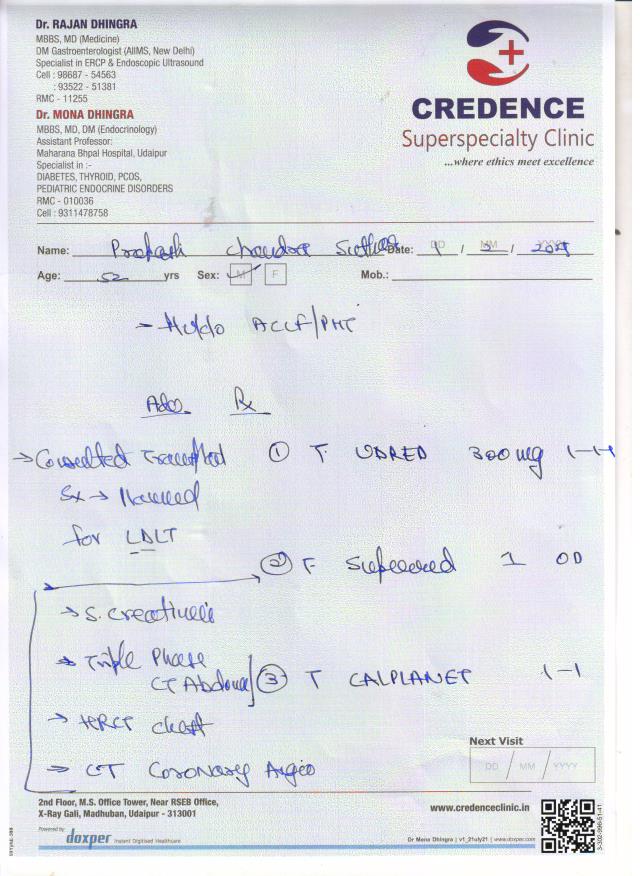 Dr. RAJAN DHINGRA
MBBS, MD (Medicine)
DM Gastroenterologist (AIIMS, New Delhi)
Specialist in ERCP & Endoscopic Ultrasound
Cell : 98687 - 54563
: 93522 - 51381
RMC - 11255
Dr. MONA DHINGRA
MBBS, MD, DM (Endocrinology)
Assistant Professor:
Maharana Bhpal Hospital, Udaipur
Specialist in :-
DIABETES, THYROID, PCOS,
PEDIATRIC ENDOCRINE DISORDERS
RMC - 010036
Cell : 9311478758
CREDENCE
Superspecialty Clinic
...where ethics meet excellence
Name: Prakash Chandra Date: DD / MM / YYYY
Age: 52 yrs Sex: M F Mob.:
ACLF/PHT
Adv. Rx
→ Consulted Transplant
Sx → Planned
for LDLT
① T. UDRED 300 mg 1-1-1
② 1 OD
→ S. Creatinine
→ Triple Phase
CT Abdomen
③ T CALPLANET 1-1
→ HRCT Chest
→ CT Coronary Angio
Next Visit
DD / MM / YYYY
2nd Floor, M.S. Office Tower, Near RSEB Office,
X-Ray Gali, Madhuban, Udaipur - 313001
www.credenceclinic.in
Powered by doxper Instant Digitised Healthcare
Dr Mona Dhingra | v1_21uly21 | www.doxper.com
3-302-996-51-41